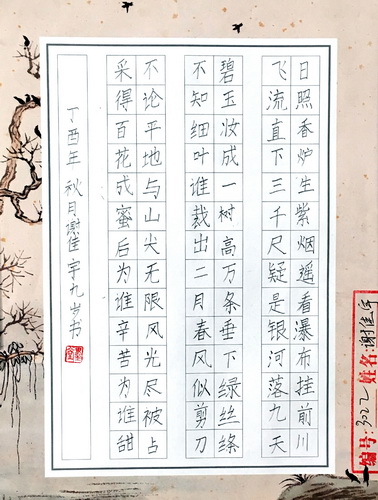 日照香炉生紫烟遥看瀑布挂前川
飞流直下三千尺疑是银河落九天
碧玉妆成一树高万条垂下绿丝绦
不知细叶谁裁出二月春风似剪刀
不论平地与山尖无限风光尽被占
采得百花成蜜后为谁辛苦为谁甜
丁酉年秋月谢佳宇九岁书
编号:3022姓名:谢佳宇